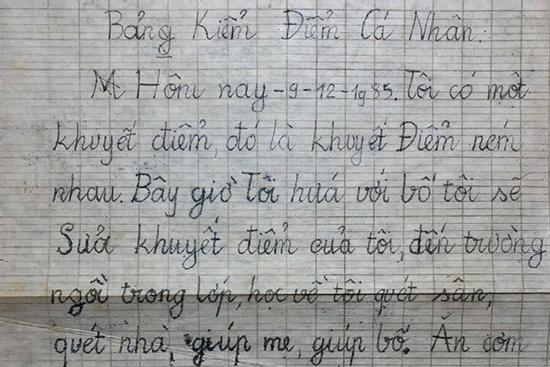 Bảng Kiểm Điểm Cá Nhân:
M: Hôm nay - 9 - 12 - 1985. Tôi có một
khuyết điểm, đó là khuyết Điểm ném
nhau. Bây giờ Tôi hứa với bố tôi sẽ
Sửa khuyết điểm của tôi, đến trường
ngồi trong lớp, học về tôi quét sân,
quét nhà, giúp mẹ, giúp bố. Ăn cơm